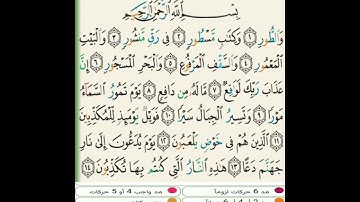 بِسْمِ اللَّهِ الرَّحْمَٰنِ الرَّحِيمِ
وَالطُّورِ ١ وَكِتَابٍ مَسْطُورٍ ٢ فِي رَقٍّ مَنْشُورٍ ٣ وَالْبَيْتِ
الْمَعْمُورِ ٤ وَالسَّقْفِ الْمَرْفُوعِ ٥ وَالْبَحْرِ الْمَسْجُورِ ٦ إِنَّ
عَذَابَ رَبِّكَ لَوَاقِعٌ ٧ مَا لَهُ مِنْ دَافِعٍ ٨ يَوْمَ تَمُورُ السَّمَاءُ
مَوْرًا ٩ وَتَسِيرُ الْجِبَالُ سَيْرًا ١٠ فَوَيْلٌ يَوْمَئِذٍ لِلْمُكَذِّبِينَ
١١ الَّذِينَ هُمْ فِي خَوْضٍ يَلْعَبُونَ ١٢ يَوْمَ يُدَعُّونَ إِلَىٰ نَارِ
جَهَنَّمَ دَعًّا ١٣ هَٰذِهِ النَّارُ الَّتِي كُنْتُمْ بِهَا تُكَذِّبُونَ ١٤
مد 6 حركات لزوماً مد واجب 4 أو 5 حركات